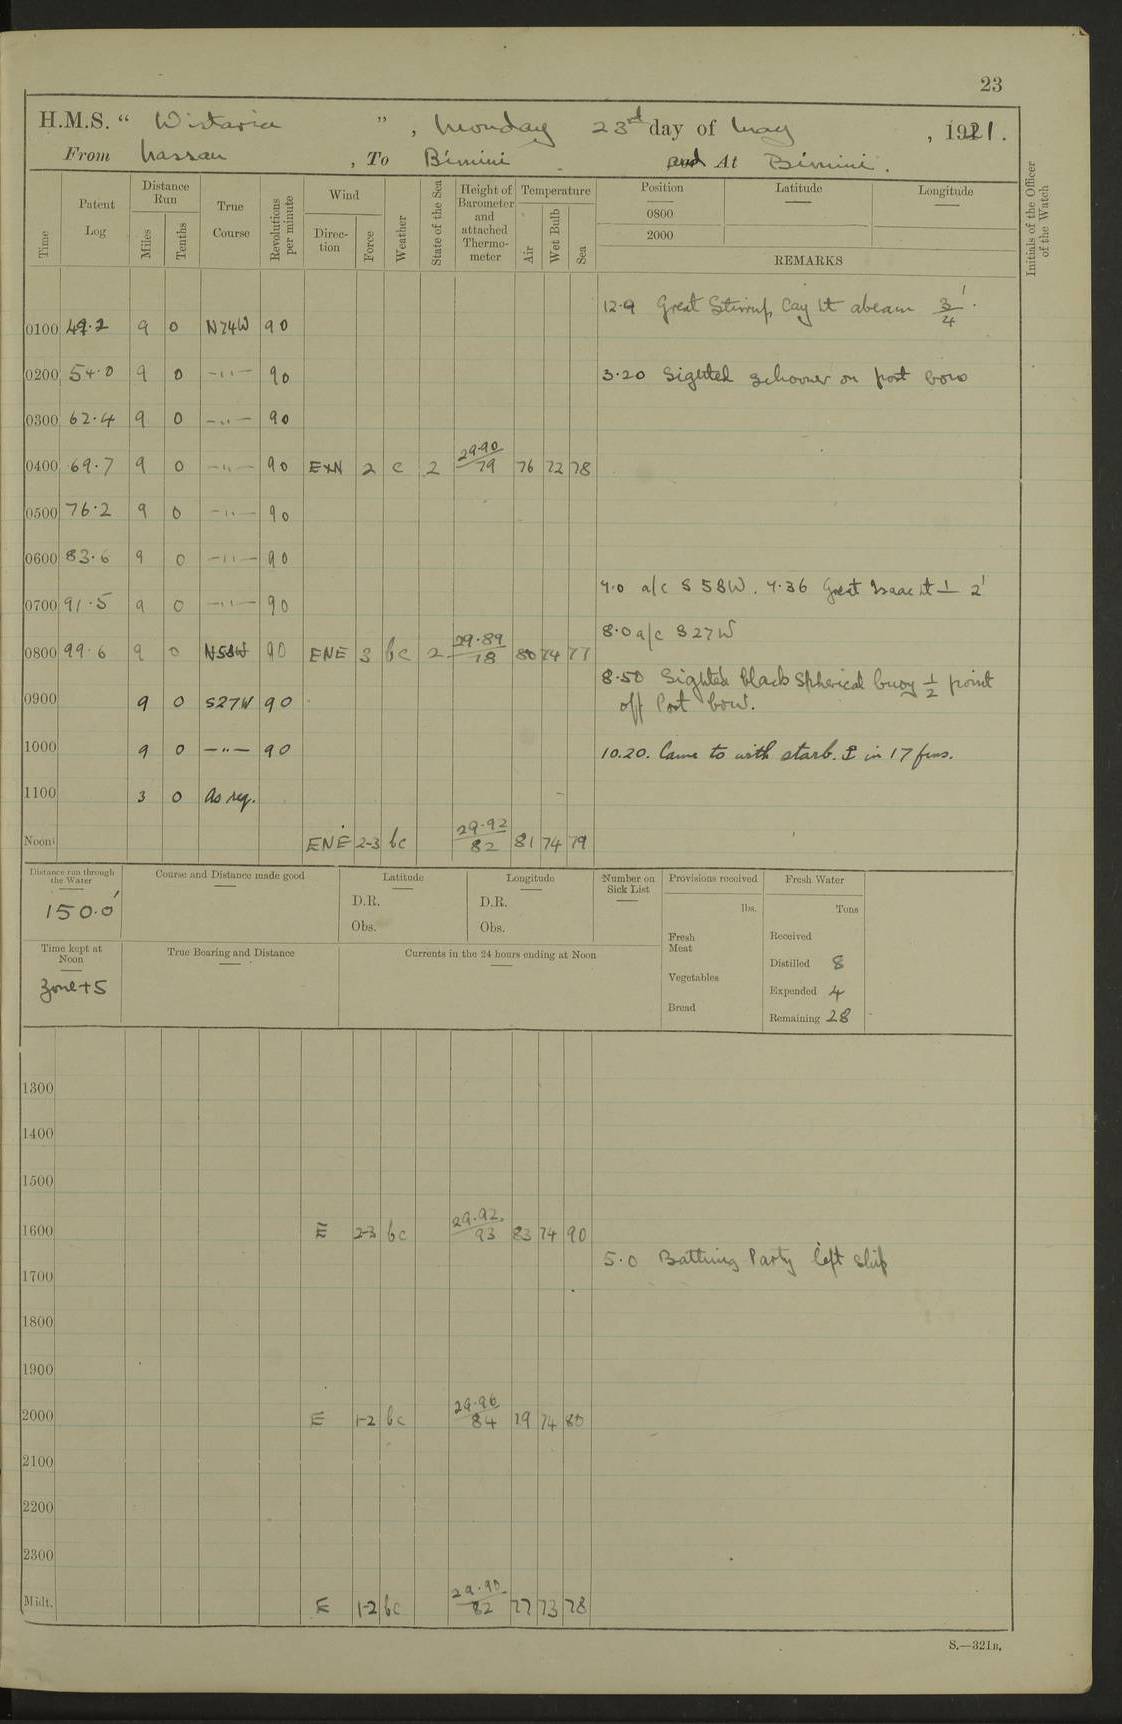 23
H.M.S. " Wistaria ", Monday 23rd day of May, 1921.
From Nassau, To Bimini and At Bimini.
Time
Patent Log
Distance Run
Miles
Tenths
True Course
Revolutions per minute
Wind
Direc-tion
Force
Weather
State of the Sea
Height of Barometer and attached Thermo-meter
Temperature
Air
Wet Bulb
Sea
Position
0800
2000
Latitude
Longitude
REMARKS
Initials of the Officer of the Watch
12.9 Great Stirrup Cay Lt abeam 3/4'.
0100 9 0 N74W 90
0200 54.0 9 0 —"— 90 3.20 Sighted schooner on port bow
0300 62.4 9 0 —"— 90
0400 69.7 9 0 —"— 90 ExN 2 c 2 29.90/79 76 72 78
0500 76.2 9 0 —"— 90
0600 83.6 9 0 —"— 90
7.0 a/c S58W. 7.36 Great Isaac Lt ⊥ 2'
0700 91.5 9 0 —"— 90
8.0 a/c S27W
0800 99.6 9 0 90 ENE 3 bc 2 29.89/78 80 74 77
8.50 Sighted black spherical buoy 1/2 point
off Port bow.
0900 9 0 S27W 90
1000 9 0 —"— 90 10.20. Came to with starb. ⚓ in 17 fms.
1100 3 0 As req.
Noon ENE 2-3 bc 29.92/82 81 74 79
Distance run through the Water
150.0'
Course and Distance made good
Latitude
D.R.
Obs.
Longitude
D.R.
Obs.
Number on Sick List
Provisions received
lbs.
Fresh Meat
Vegetables
Bread
Fresh Water
Tons
Received
Distilled 8
Expended 4
Remaining 28
Time kept at Noon
Zone+5
True Bearing and Distance
Currents in the 24 hours ending at Noon
1300
1400
1500
1600 E 2-3 bc 29.92/93 83 74 90
5.0 Bathing Party left ship
1700
1800
1900
2000 E 1-2 bc 29.96/84 79 74 80
2100
2200
2300
Midt. E 1-2 bc 29.90/82 77 73 78
S.—321B.